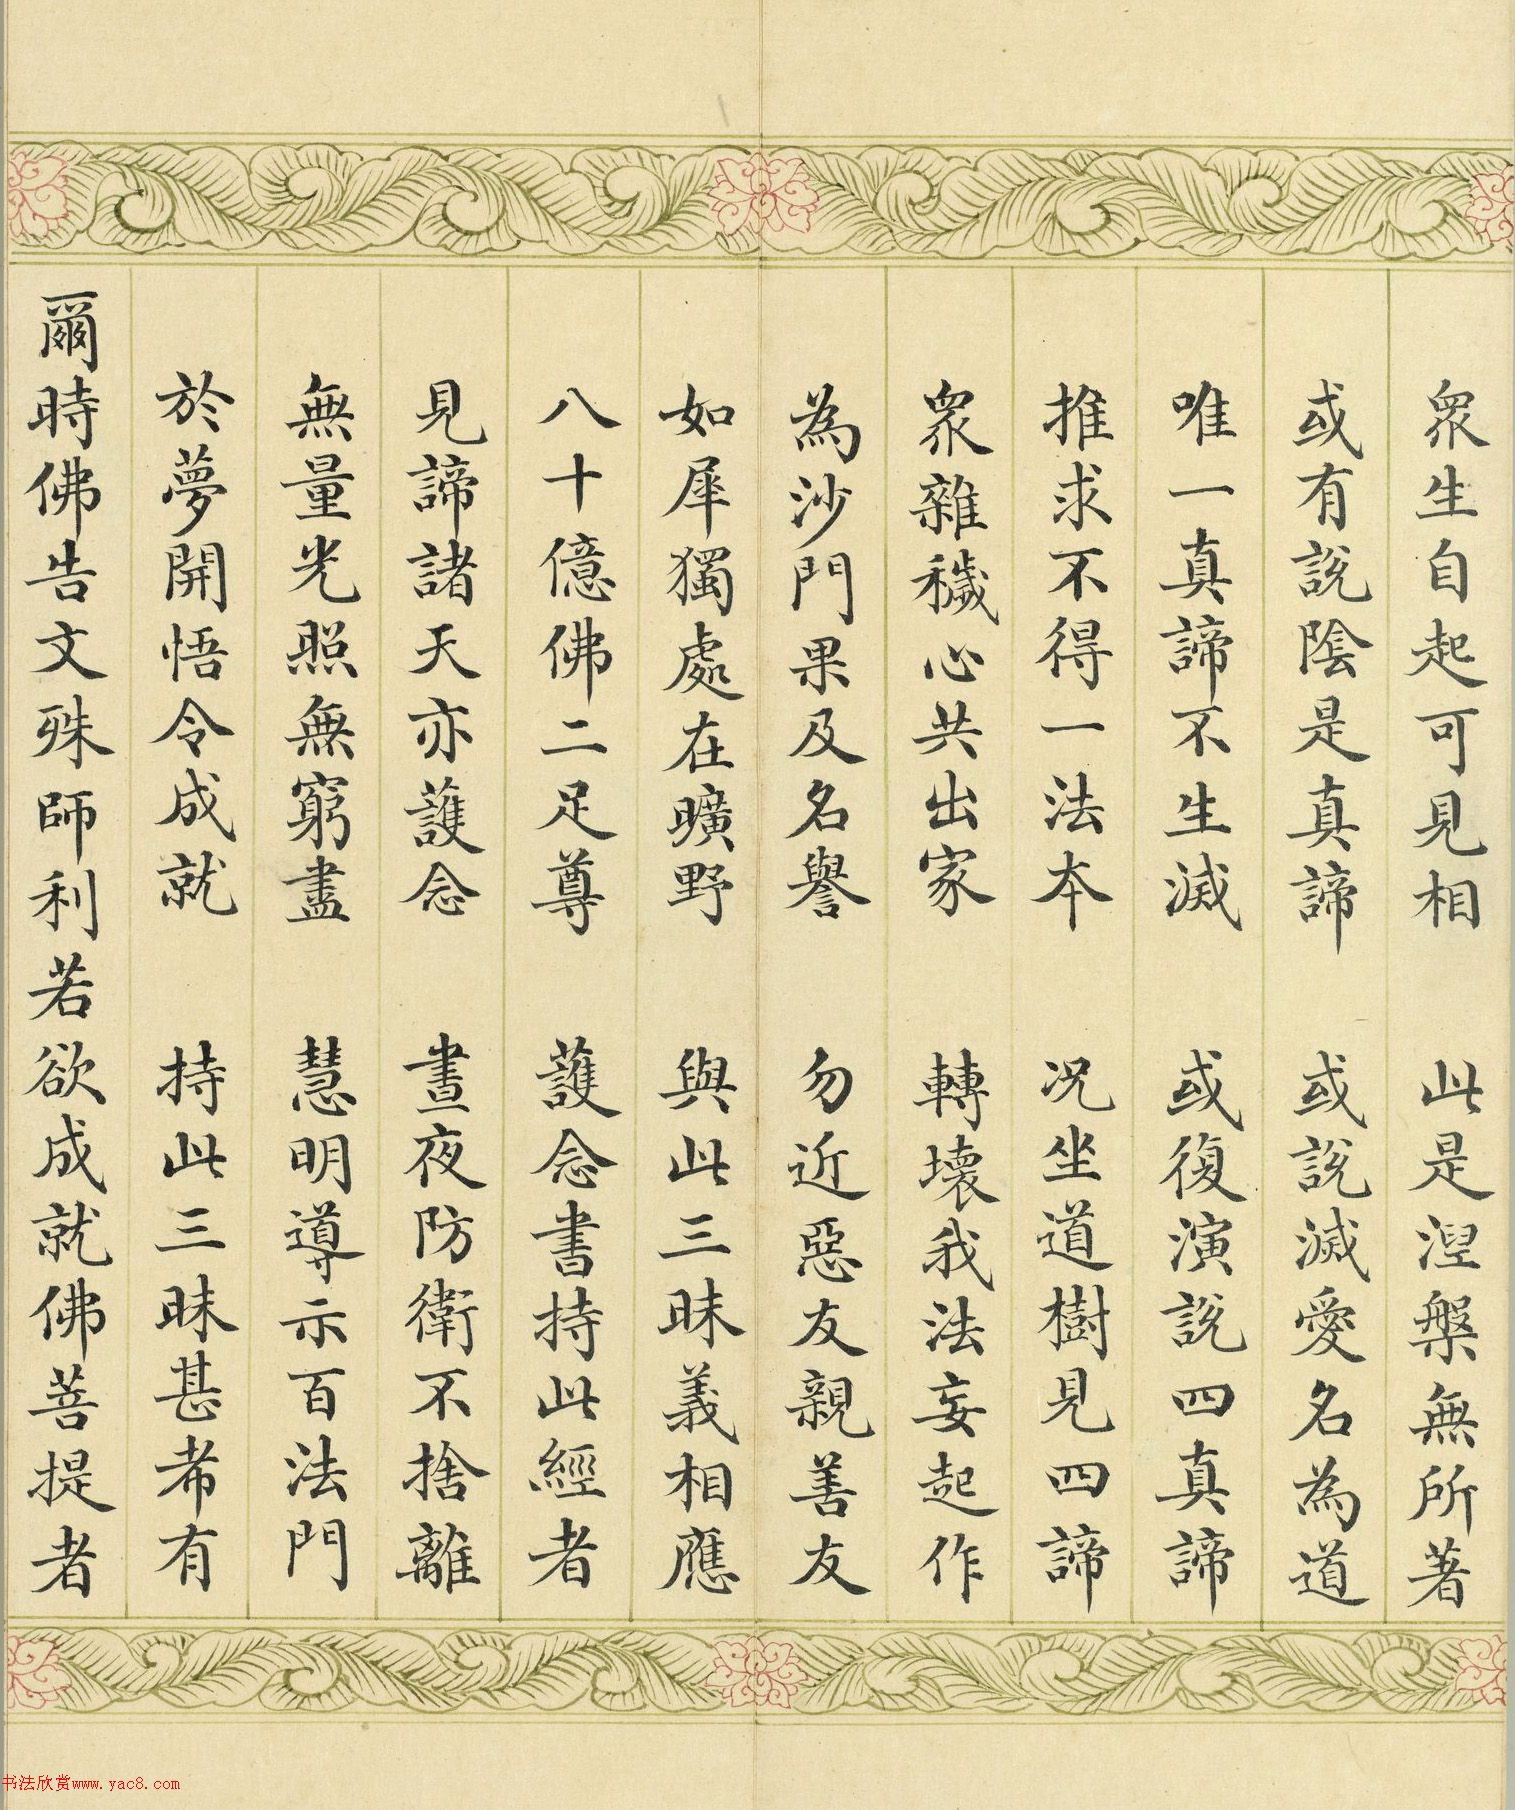 衆生自起可見相　此是涅槃無所著
或有說陰是真諦　或說滅愛名為道
唯一真諦不生滅　或復演說四真諦
推求不得一法本　况坐道樹見四諦
衆雜穢心共出家　轉壞我法妄起作
為沙門果及名譽　勿近惡友親善友
如犀獨處在曠野　與此三昧義相應
八十億佛二足尊　護念書持此經者
見諦諸天亦護念　晝夜防衛不捨離
無量光照無窮盡　慧明導示百法門
於夢開悟令成就　持此三昧甚希有
爾時佛告文殊師利若欲成就佛菩提者
书法欣赏www.yac8.com